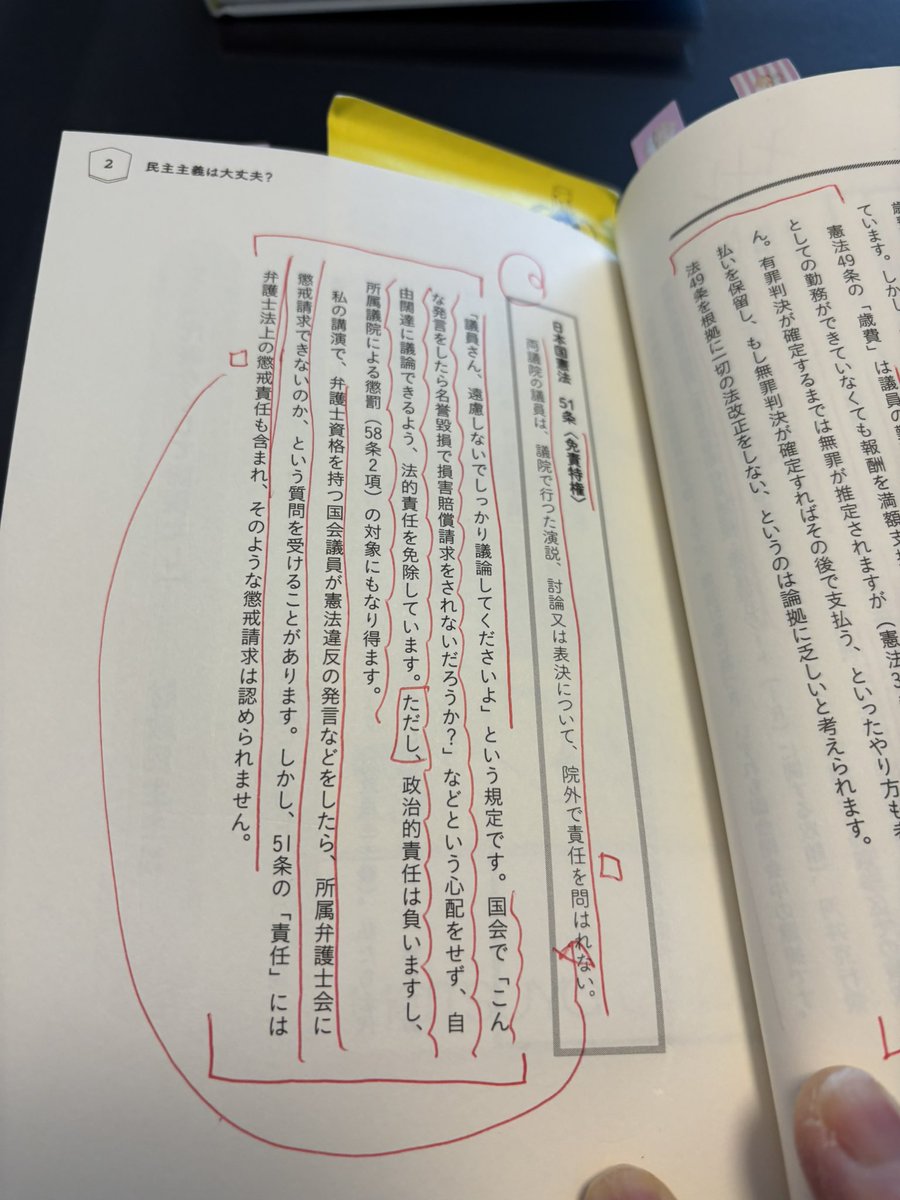 ています。しかし
憲法49条の「歳費」は議員の
としての勤務ができていなくても報酬を満額支
ん。有罪判決が確定するまでは無罪が推定されますが（憲法3
払いを保留し、もし無罪判決が確定すればその後で支払う、といったやり方も考
法49条を根拠に一切の法改正をしない、というのは論拠に乏しいと考えられます。
2 民主主義は大丈夫？
日本国憲法 51条（免責特権）
両議院の議員は、議院で行つた演説、討論又は表決について、院外で責任を問はれない。
「議員さん、遠慮しないでしっかり議論してくださいよ」という規定です。国会で「こん
な発言をしたら名誉毀損で損害賠償請求をされないだろうか？」などという心配をせず、自
由闊達に議論できるよう、法的責任を免除しています。ただし、政治的責任は負いますし、
所属議院による懲罰（58条2項）の対象にもなり得ます。
私の講演で、弁護士資格を持つ国会議員が憲法違反の発言などをしたら、所属弁護士会に
懲戒請求できないのか、という質問を受けることがあります。しかし、51条の「責任」には
弁護士法上の懲戒責任も含まれ、そのような懲戒請求は認められません。